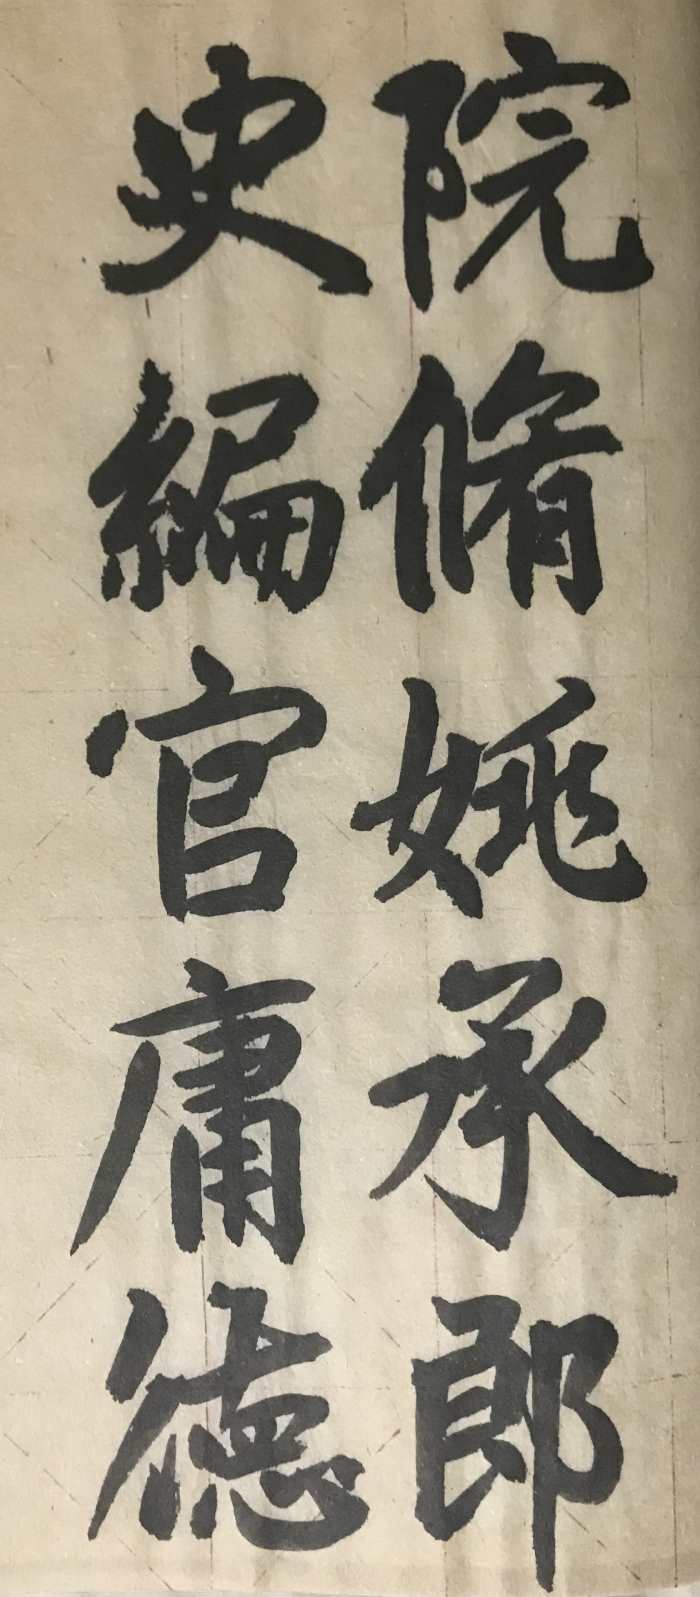 院脩姚承郎
史編官庸德